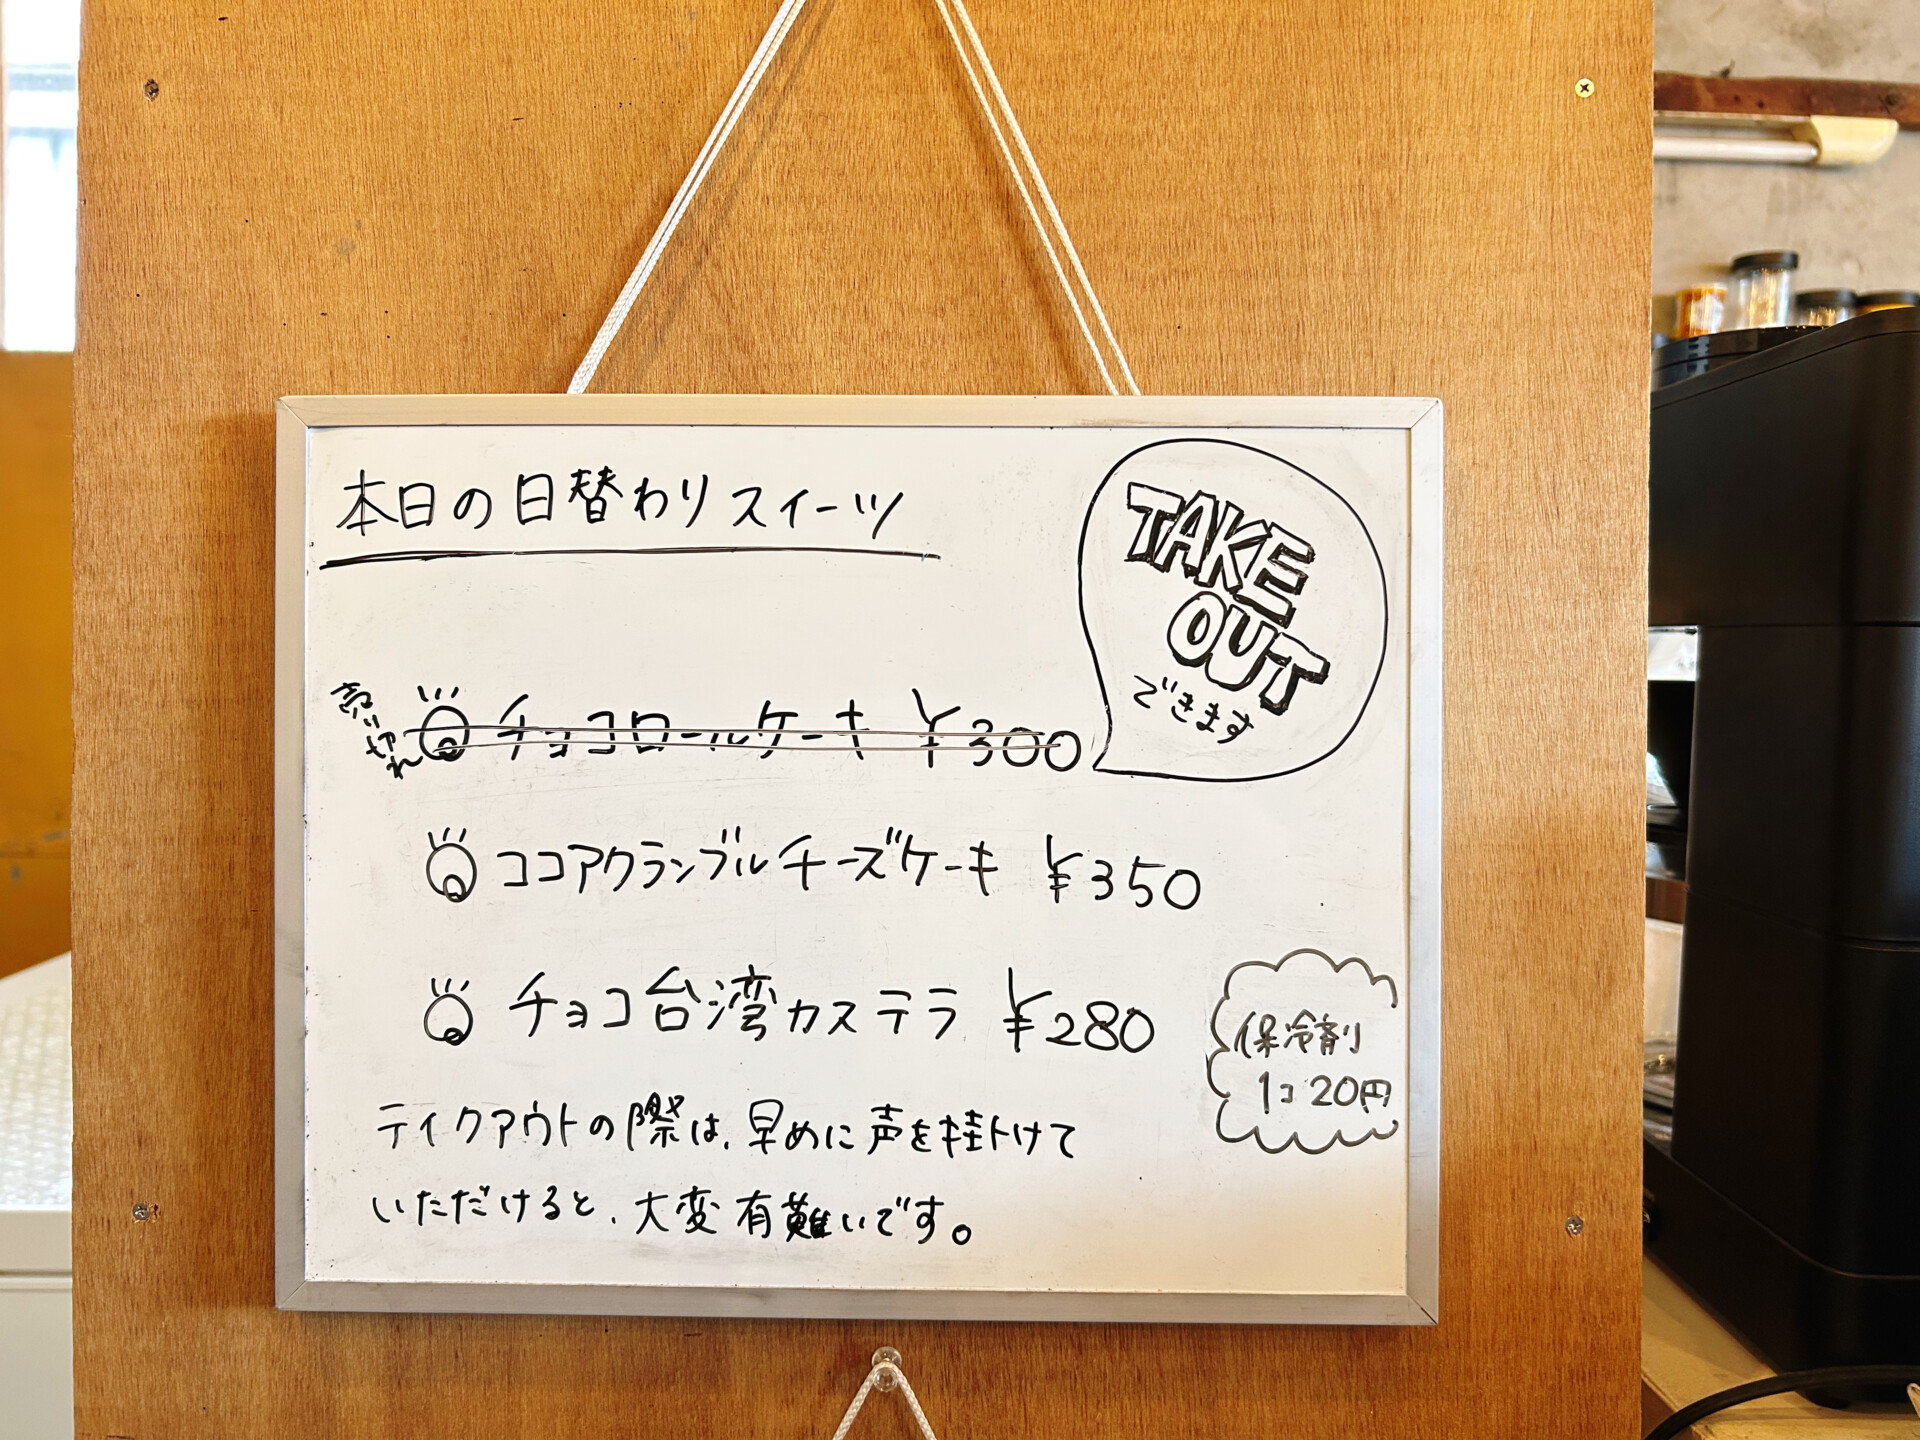 本日の日替わりスイーツ
TAKE
OUT
できます
売り切れ
チョコロールケーキ ¥300
ココアクランブルチーズケーキ ¥350
チョコ台湾カステラ ¥280
保冷剤
1コ 20円
テイクアウトの際は、早めに声を掛けて
いただけると、大変有難いです。